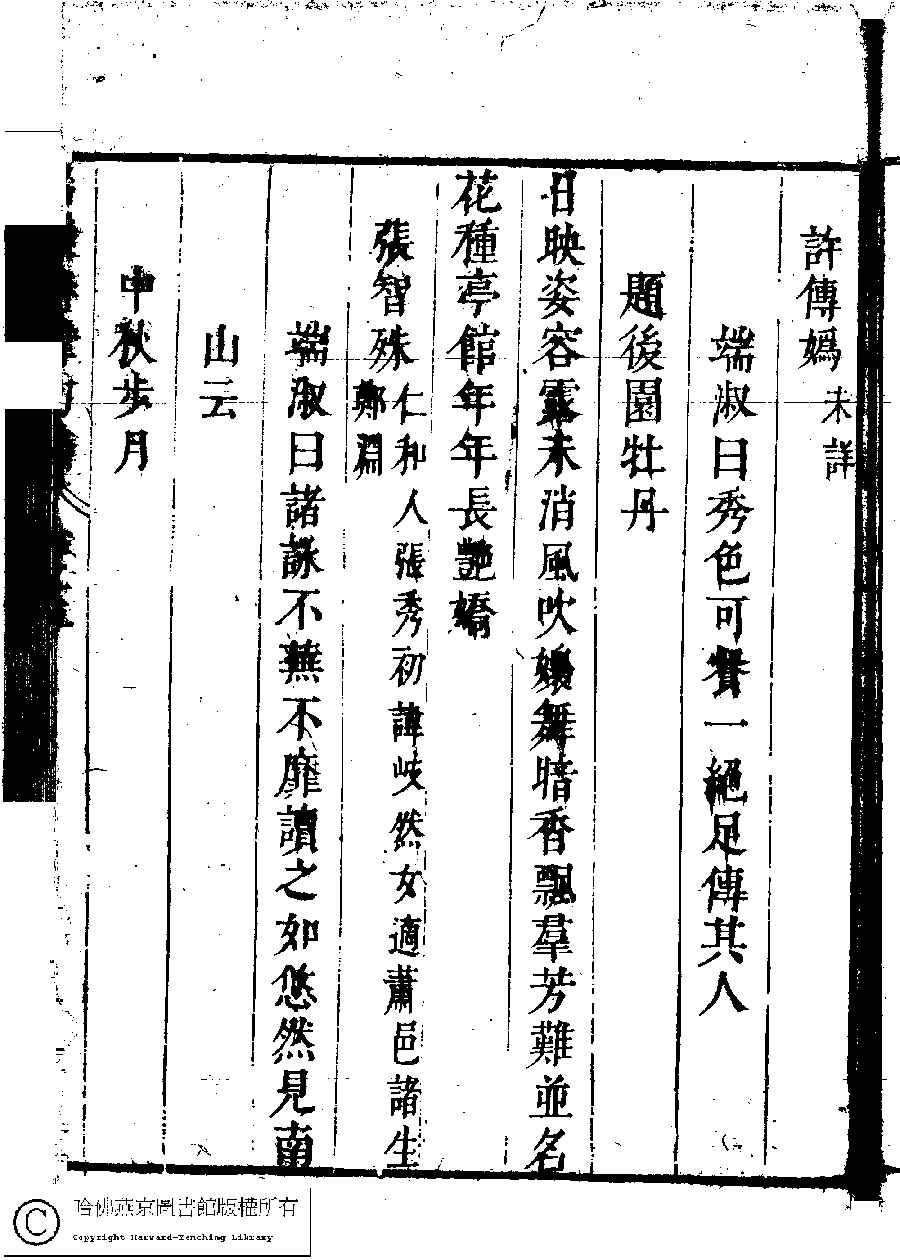 許傳媯未詳
端淑曰秀色可餐一絕足傳其人
題後園牡丹
日映姿容露未消風吹嬝舞暗香飄羣芳難並名
花種亭館年年長艷嬌
張智殊仁和人張秀初諱岐然女適蕭邑諸生
鄭淵
端淑曰諸詠不蕪不靡讀之如悠然見南
山云
中秋步月
哈佛燕京圖書館版權所有
Copyright Harvard-Yenching Library